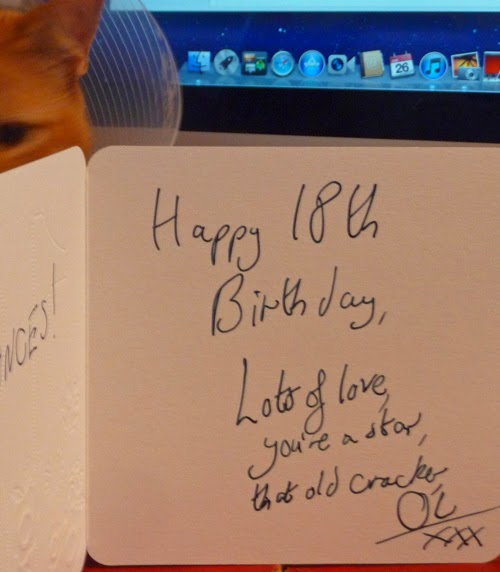 NCES!
Happy 18th
Birthday,
Lots of love,
you're a star,
that old cracker,
OL
xxx
26